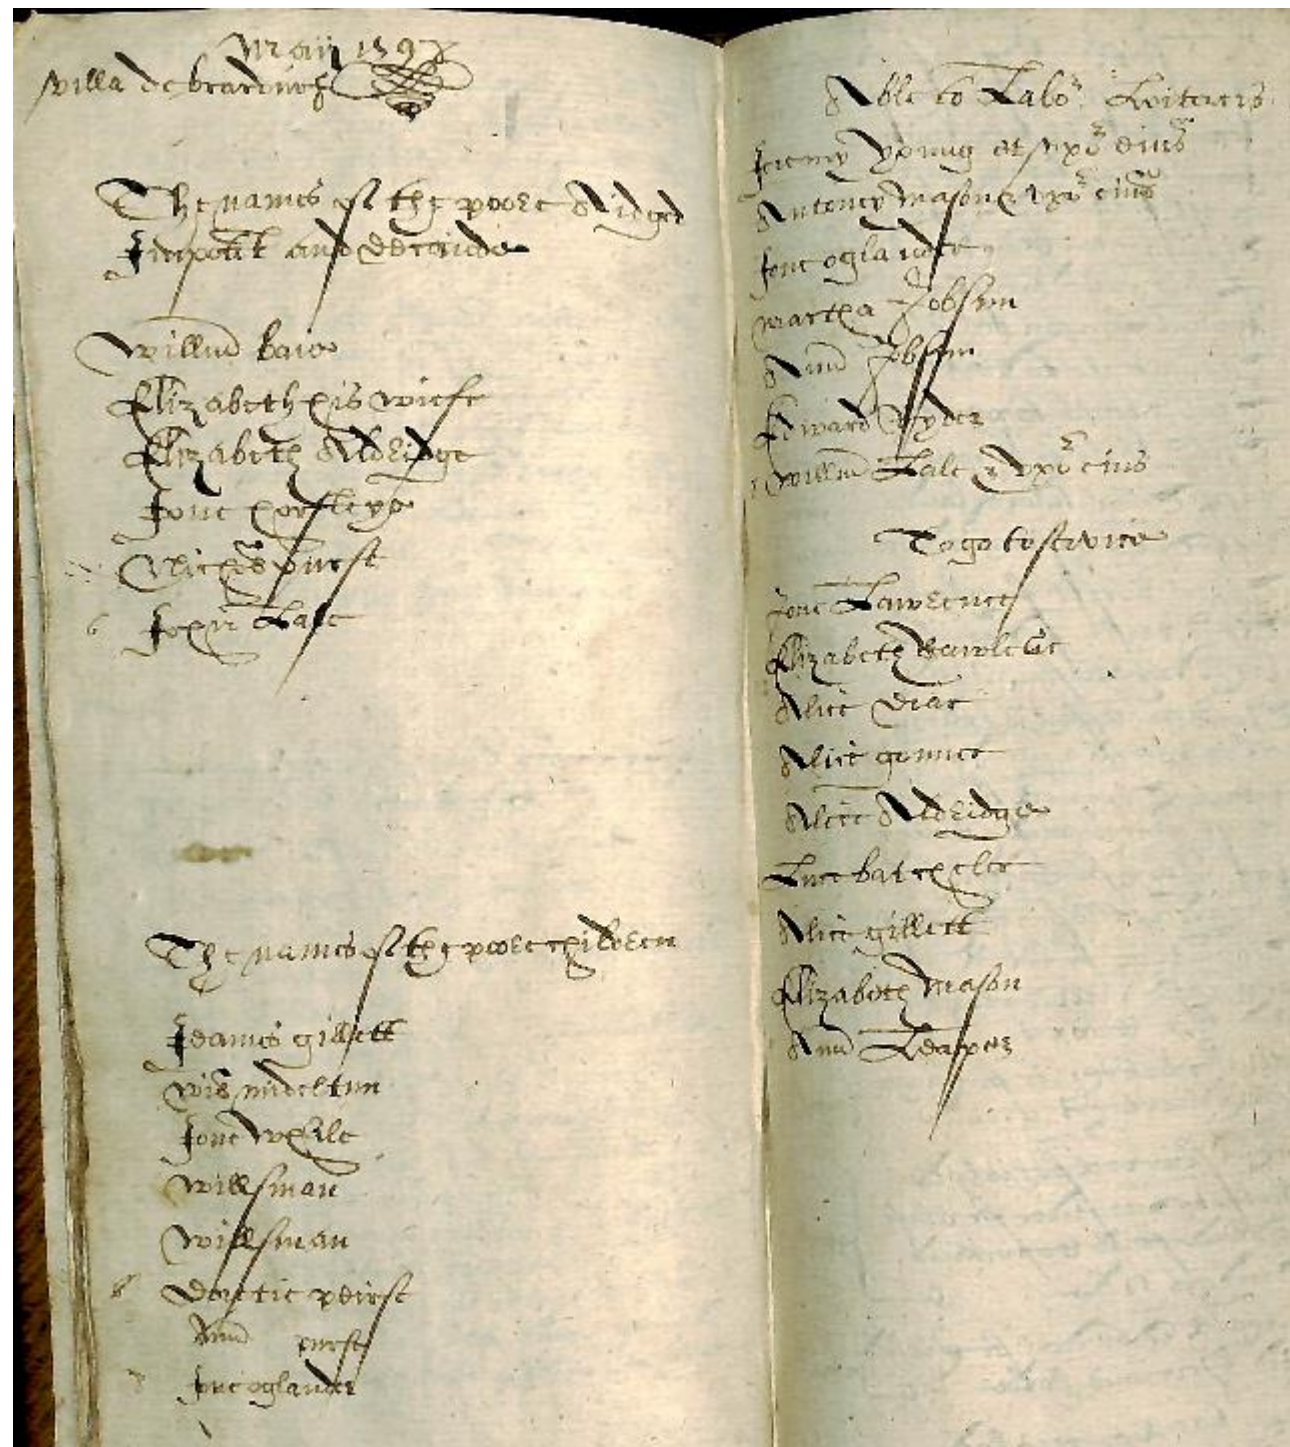 Maij 1597
villa de brardinge
The names of the poore Aidged
Impotēt and decaide
Willm̄
Elizabeth his wiefe
Elizabeth Aldridge
Jone
Nichūs Hurst
John Lale
6
The names of the poore children
Jeames gillett
Wil mideltun
Jone While
Will sman
Will sman
Dortie peirst
Ann
Jone oglander
Able to Labor Loiterers
Jeremy Yonug et uxor eius
Antoney Mason & uxor eius
Jone oglander
Martha Jobson
Ann Jobson
Edward Ryder
Willm̄ Lale & uxor eius
To go to service
Jone Lawrence
Elizabeth
Alice
Alice
Alice Aldridge
Luce batcheler
Alice gillett
Elizabeth Mason
Ann Leaper